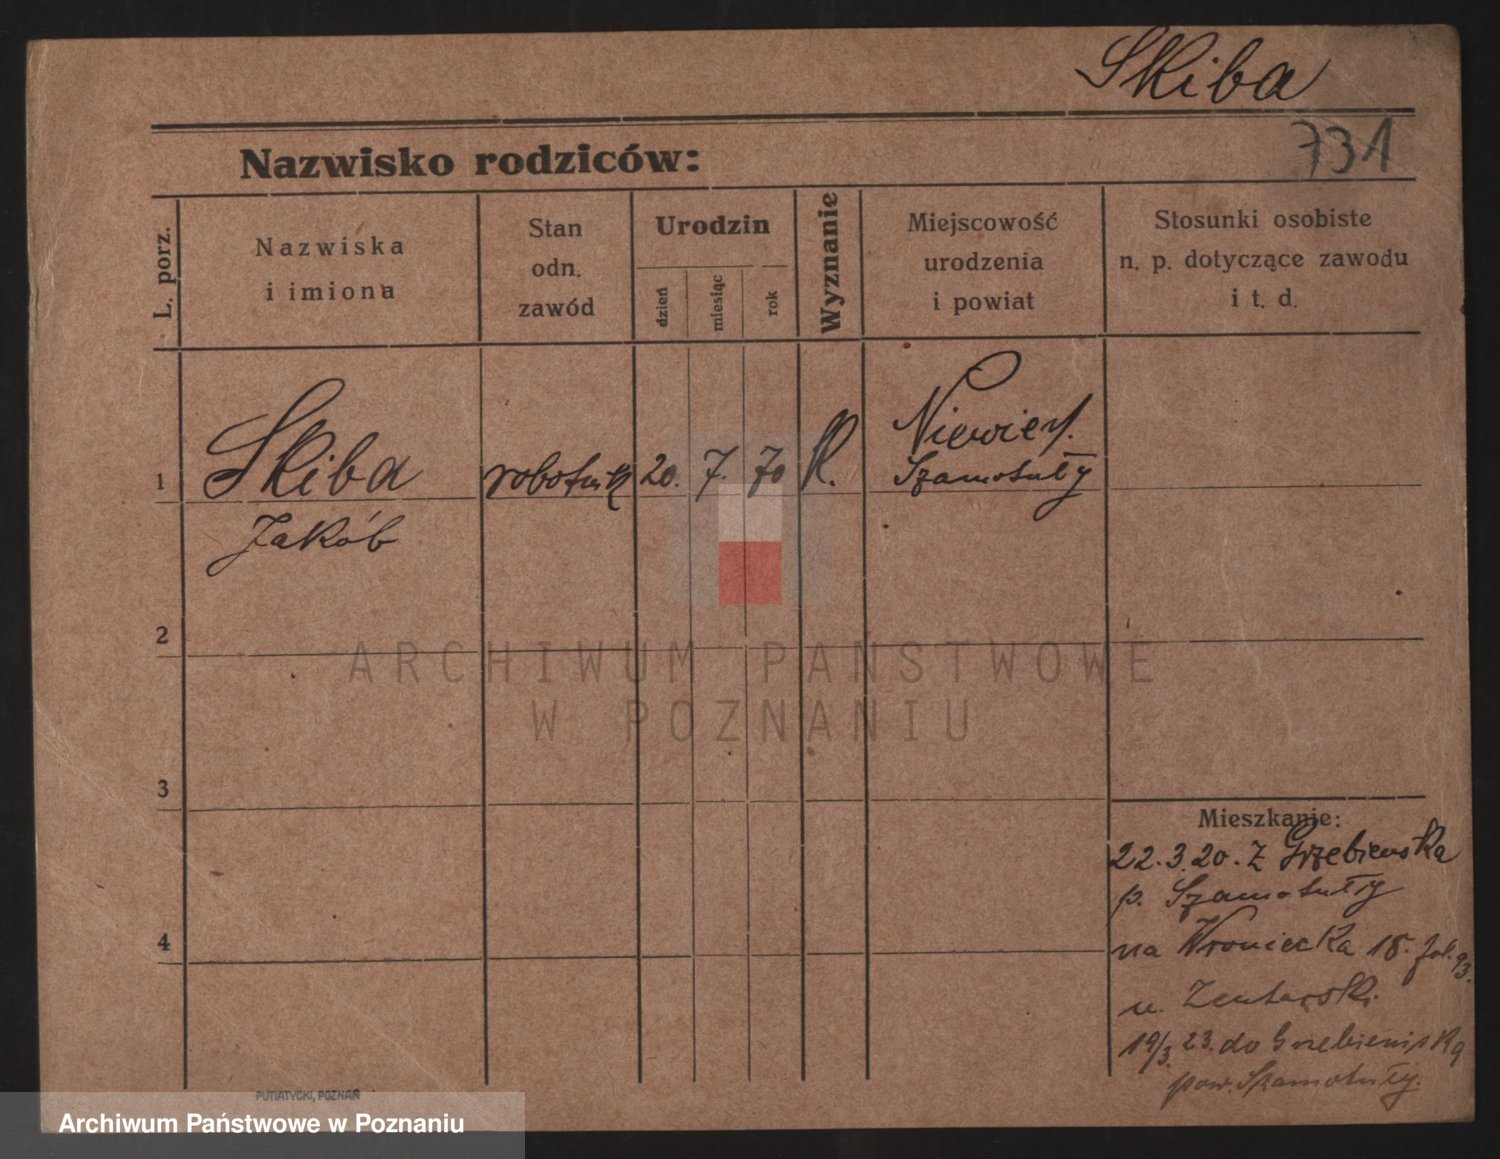 Skiba
731
Nazwisko rodziców:
L. porz.
Nazwiska
i imiona
Stan
odn.
zawód
Urodzin
dzień
miesiąc
rok
Wyznanie
Miejscowość
urodzenia
i powiat
Stosunki osobiste
n. p. dotyczące zawodu
i t. d.
1
Skiba
Jakób
robotnik
20.
7.
70
K.
Szamotuły
2
3
4
Mieszkanie:
22.3.20. z
p. Szamotuły
na Wroniecka 18.
u.
19/3. 23. do
pow. Szamotuły.
PUTIATYCKI, POZNAŃ
ARCHIWUM PAŃSTWOWE
W POZNANIU
Archiwum Państwowe w Poznaniu